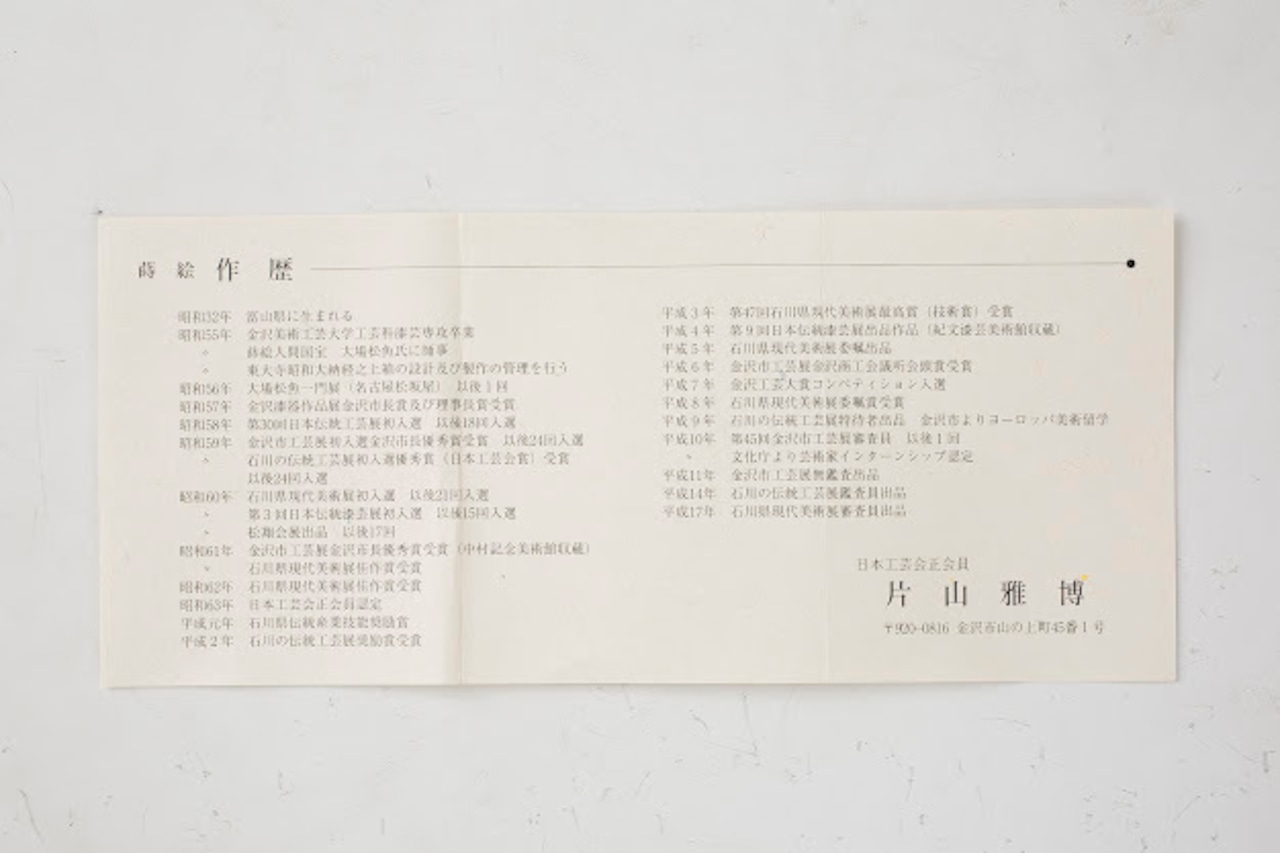 蒔絵 作歴
昭和32年 富山県に生まれる
昭和55年 金沢美術工芸大学工芸科漆芸専攻卒業
〃 蒔絵人間国宝 大場松魚氏に師事
〃 東大寺昭和大納経之上箱の設計及び製作の管理を行う
昭和56年 大場松魚一門展（名古屋松坂屋） 以後1回
昭和57年 金沢漆器作品展金沢市長賞及び理事長賞受賞
昭和58年 第30回日本伝統工芸展初入選 以後18回入選
昭和59年 金沢市工芸展初入選金沢市長優秀賞受賞 以後24回入選
〃 石川の伝統工芸展初入選優秀賞（日本工芸会賞）受賞
以後24回入選
昭和60年 石川県現代美術展初入選 以後21回入選
〃 第3回日本伝統漆芸展初入選 以後15回入選
〃 松翔会展出品 以後17回
昭和61年 金沢市工芸展金沢市長優秀賞受賞（中村記念美術館収蔵）
〃 石川県現代美術展佳作賞受賞
昭和62年 石川県現代美術展佳作賞受賞
昭和63年 日本工芸会正会員認定
平成元年 石川県伝統産業技能奨励賞
平成2年 石川の伝統工芸展奨励賞受賞
平成3年 第47回石川県現代美術展最高賞（技術賞）受賞
平成4年 第9回日本伝統漆芸展出品作品（紀文漆芸美術館収蔵）
平成5年 石川県現代美術展委嘱出品
平成6年 金沢市工芸展金沢商工会議所会頭賞受賞
平成7年 金沢工芸大賞コンペティション入選
平成8年 石川県現代美術展委嘱賞受賞
平成9年 石川の伝統工芸展特待者出品 金沢市よりヨーロッパ美術留学
平成10年 第45回金沢市工芸展審査員 以後1回
〃 文化庁より芸術家インターンシップ認定
平成11年 金沢市工芸展無鑑査出品
平成14年 石川の伝統工芸展鑑査員出品
平成17年 石川県現代美術展審査員出品
日本工芸会正会員
片山雅博
〒920-0816 金沢市山の上町45番1号